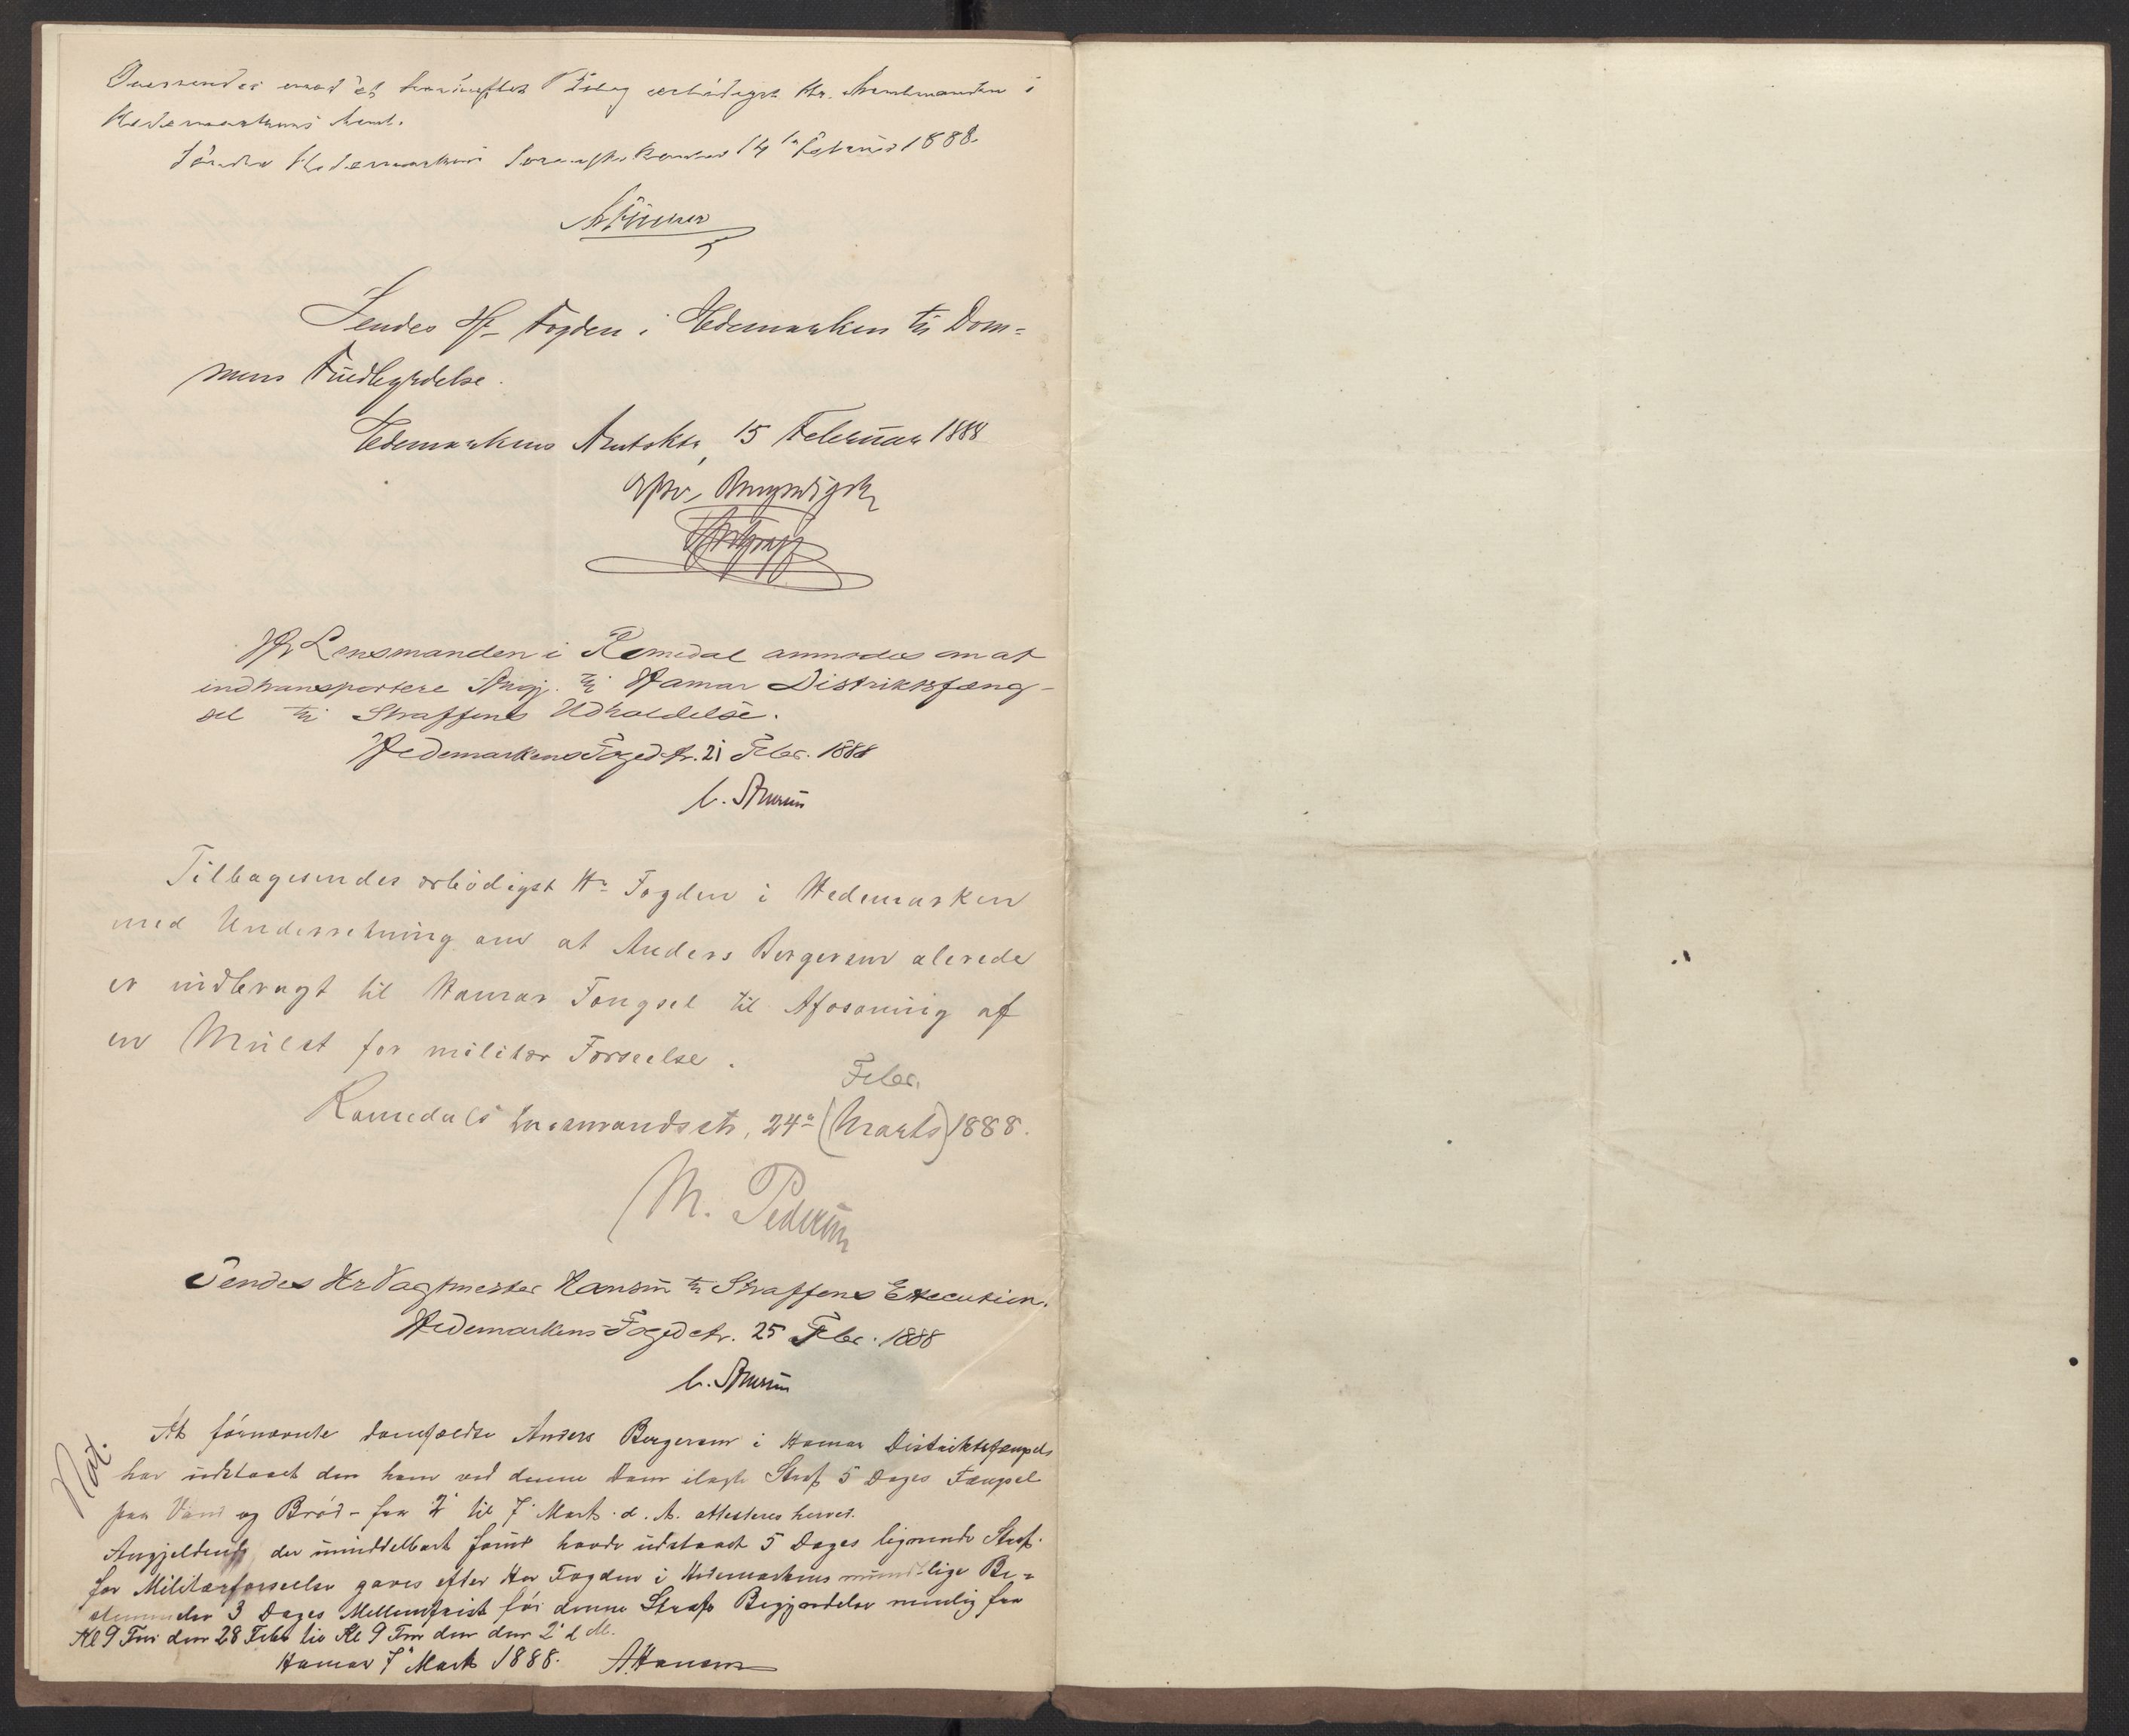 Oversendes med et heroméfted Bilag ærbødigst Hr. Amtmanden i
Hedemarkens Amt.
Søndre Hedemarkens Sorenskr.kontor 14de Februar 1888
Sendes Hr Fogden i Hedemarken til Dom-
mens Fuldbyrdelse.
Hedemarkens Amtsktr, 15 Februar 1888
Hr Lensmanden i Romedal anmodes om at
indtransportere Angj. til Hamar Distriktsfæng-
sel til Straffens Udholdelse.
Hedemarkens Fogedctr. 21 Febr. 1888
Tilbagesendes ærbødigst Hr Fogden i Hedemarken
med Underretning om at Anders Bergersen alerede
er indbragt til Hamar Fængsel til Afsoning af
en Mulct for militær Forseelse.
Febr.
Romedals Lensmandsctr, 24de (Marts) 1888.
M. Pedersen
Sendes Hr Vagtmester Hansen til Straffens Execution.
Hedemarkens Fogedctr. 25 Febr. 1888
Not.
At fornævnte domfældte Anders Bergersen i Hamar Distriktsfængsels
har udstaaet den ham ved denne Dom ilagte Straf 5 Dages Fængsel
paa Vand og Brød - fra 2' til 7' Marts d. A. attesteres herved.
Angjeldende, der umiddelbart forud havde udstaaet 5 Dages lignende Straf
for Militærforseelse gaves efter Her Fogden i Hedemarkens mundtlige Be-
stemmelse 3 Dages Mellemfrist før denne Strafs Begyndelse nemlig fra
Kl 9 Fm den 28 Febr til Kl 9 Fm den den 2' d M.
Hamar 7' Marts 1888. A. Hansen